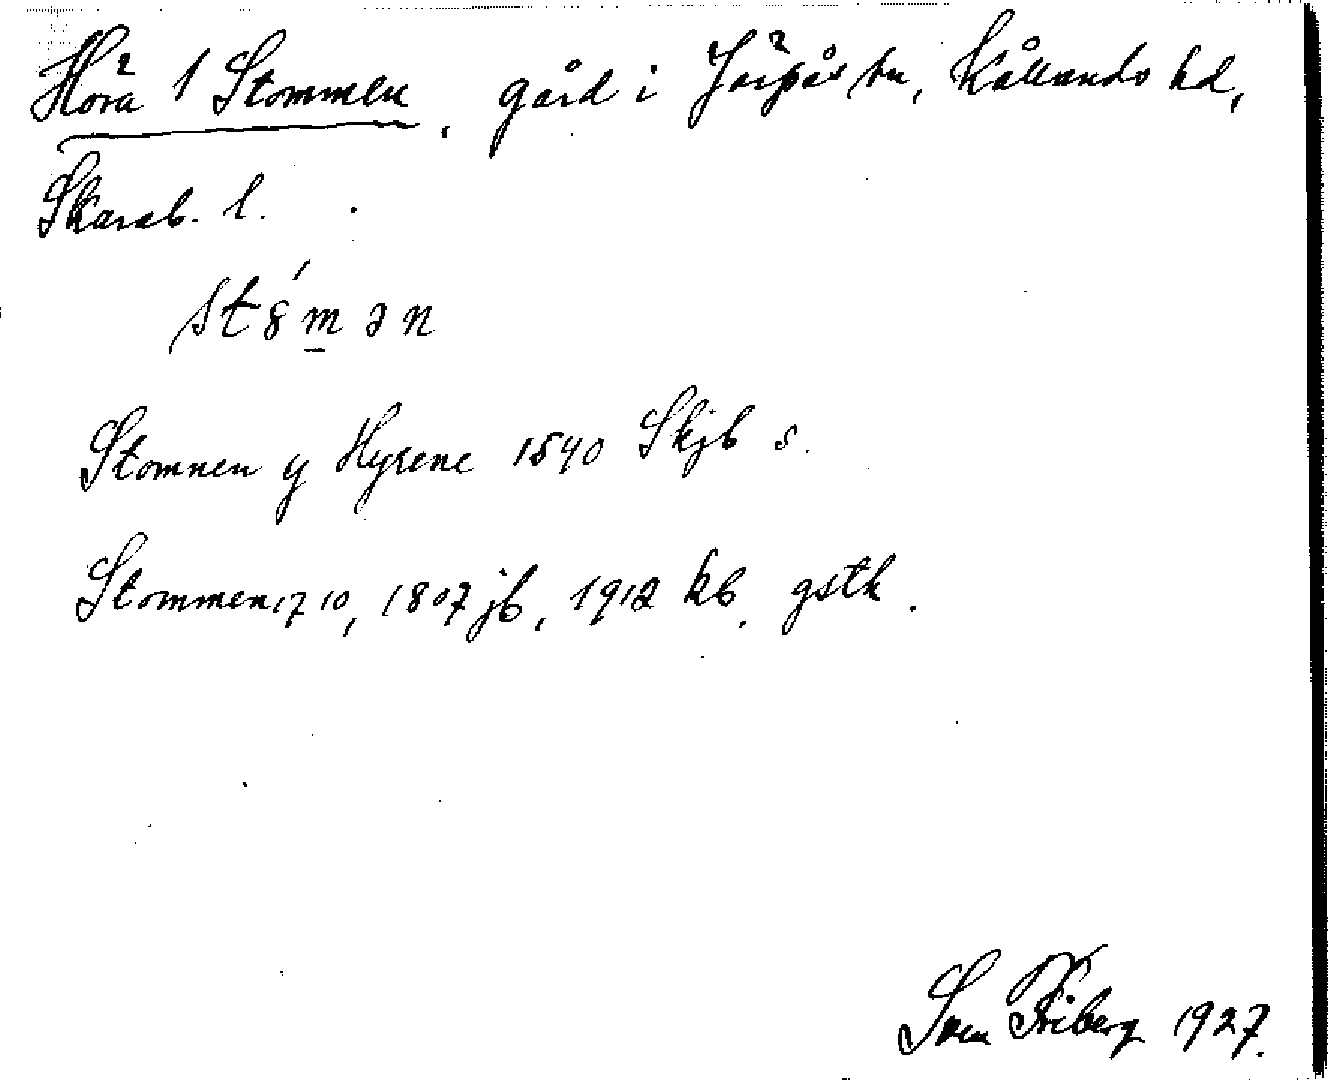 Höra 1 Stommen, gård i Järpås sn, Kållands hd,
Skarab. l.
st8́m̲ən
Stomnen y Hyrene 1540 Skjb s.
Stommen 1710, 1807 jb, 1912 kb, gstk.
Sven Friberg 1927.